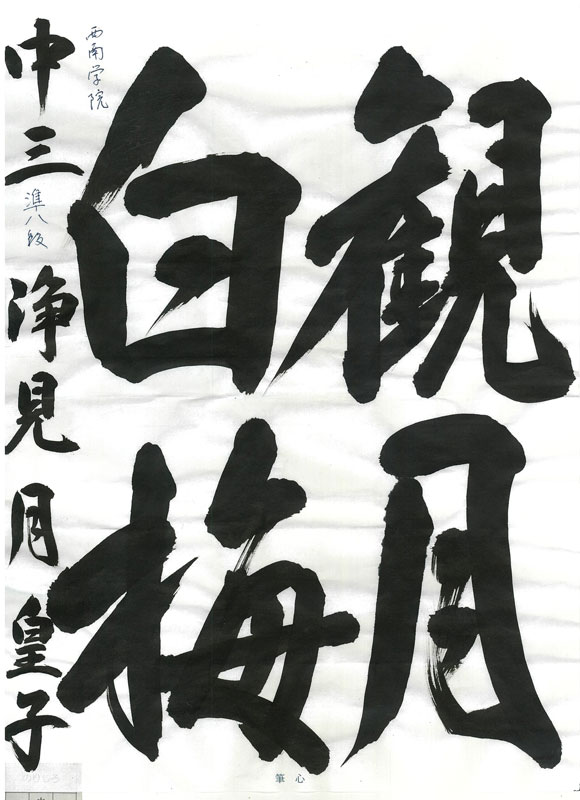 観月
白梅
西南学院
中三 準八段 浄見月皇子
心筆